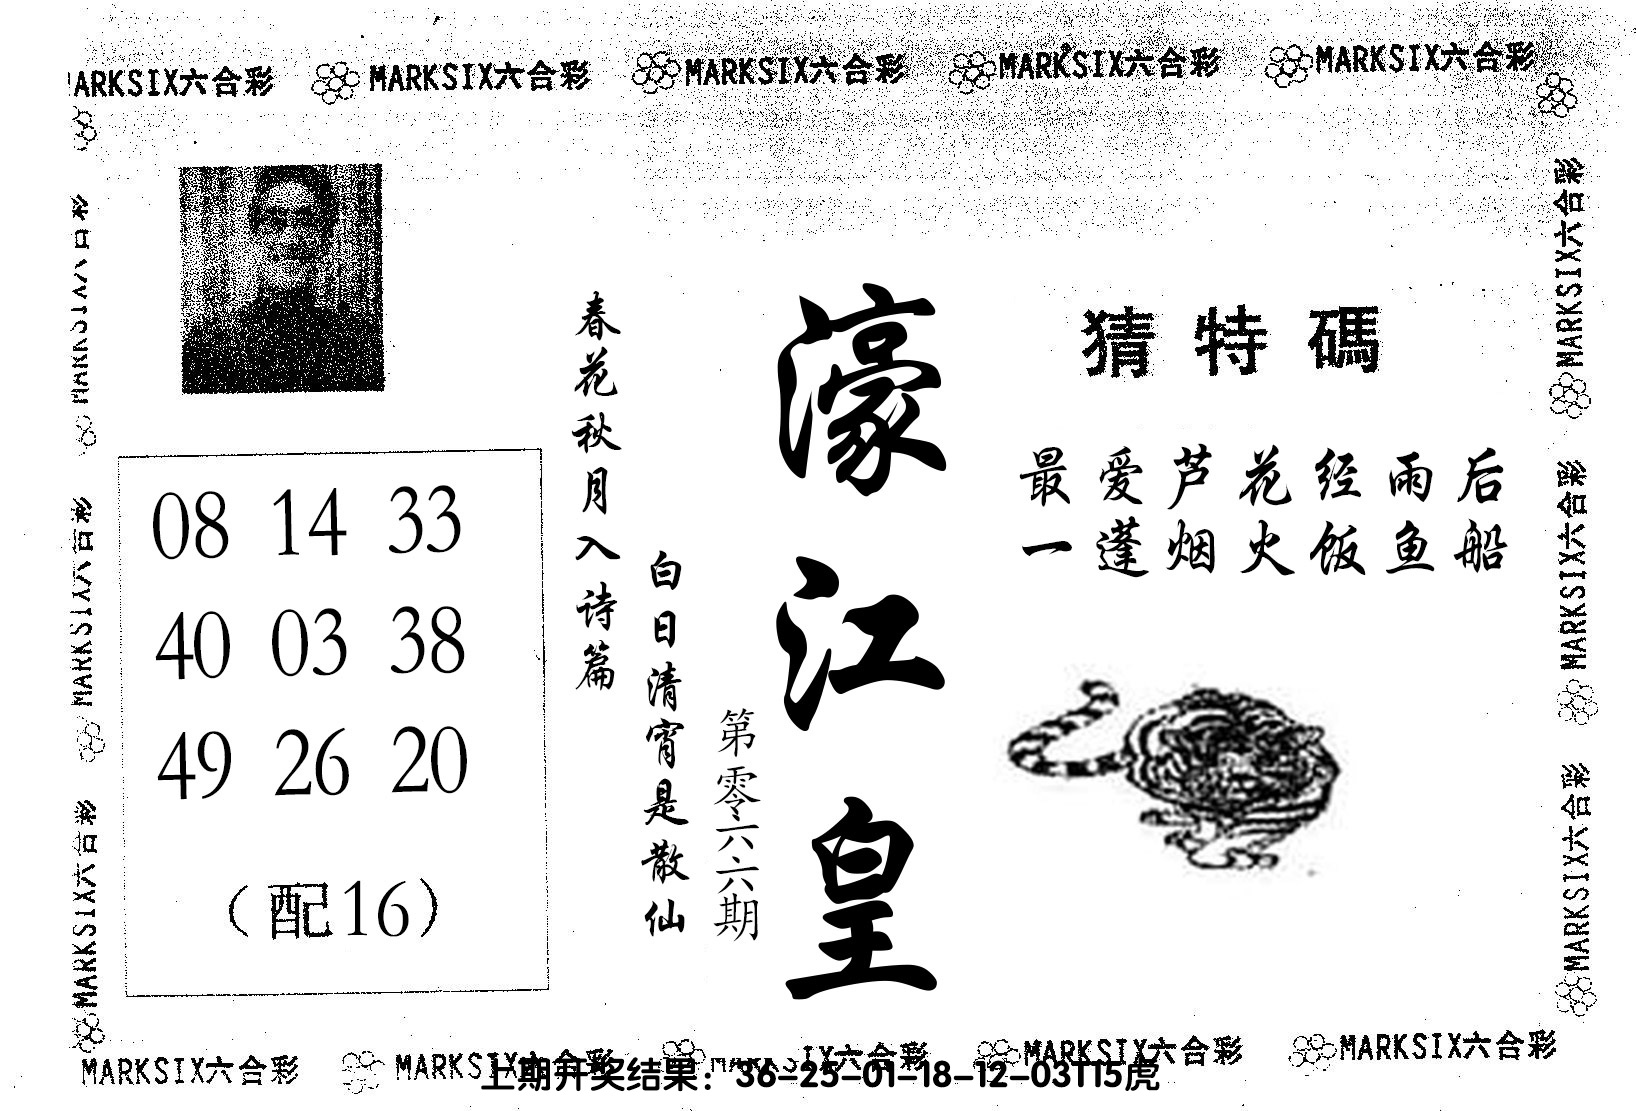 MARKSIX六合彩 MARKSIX六合彩 MARKSIX六合彩 MARKSIX六合彩 MARKSIX六合彩
猜特碼
最爱芦花经雨后
一蓬烟火饭鱼船
濠江皇
第零六六期
白日清宵是散仙
春花秋月入诗篇
08 14 33
40 03 38
49 26 20
(配16)
MARKSIX六合彩 MARKSIX六合彩 MARKSIX六合彩
MARKSIX六合彩 MARKSIX六合彩 MARKSIX六合彩
MARKSIX六合彩 MARKSIX六合彩 MARKSIX六合彩 MARKSIX六合彩 MARKSIX六合彩
上期开奖结果：36-25-01-18-12-03T15虎